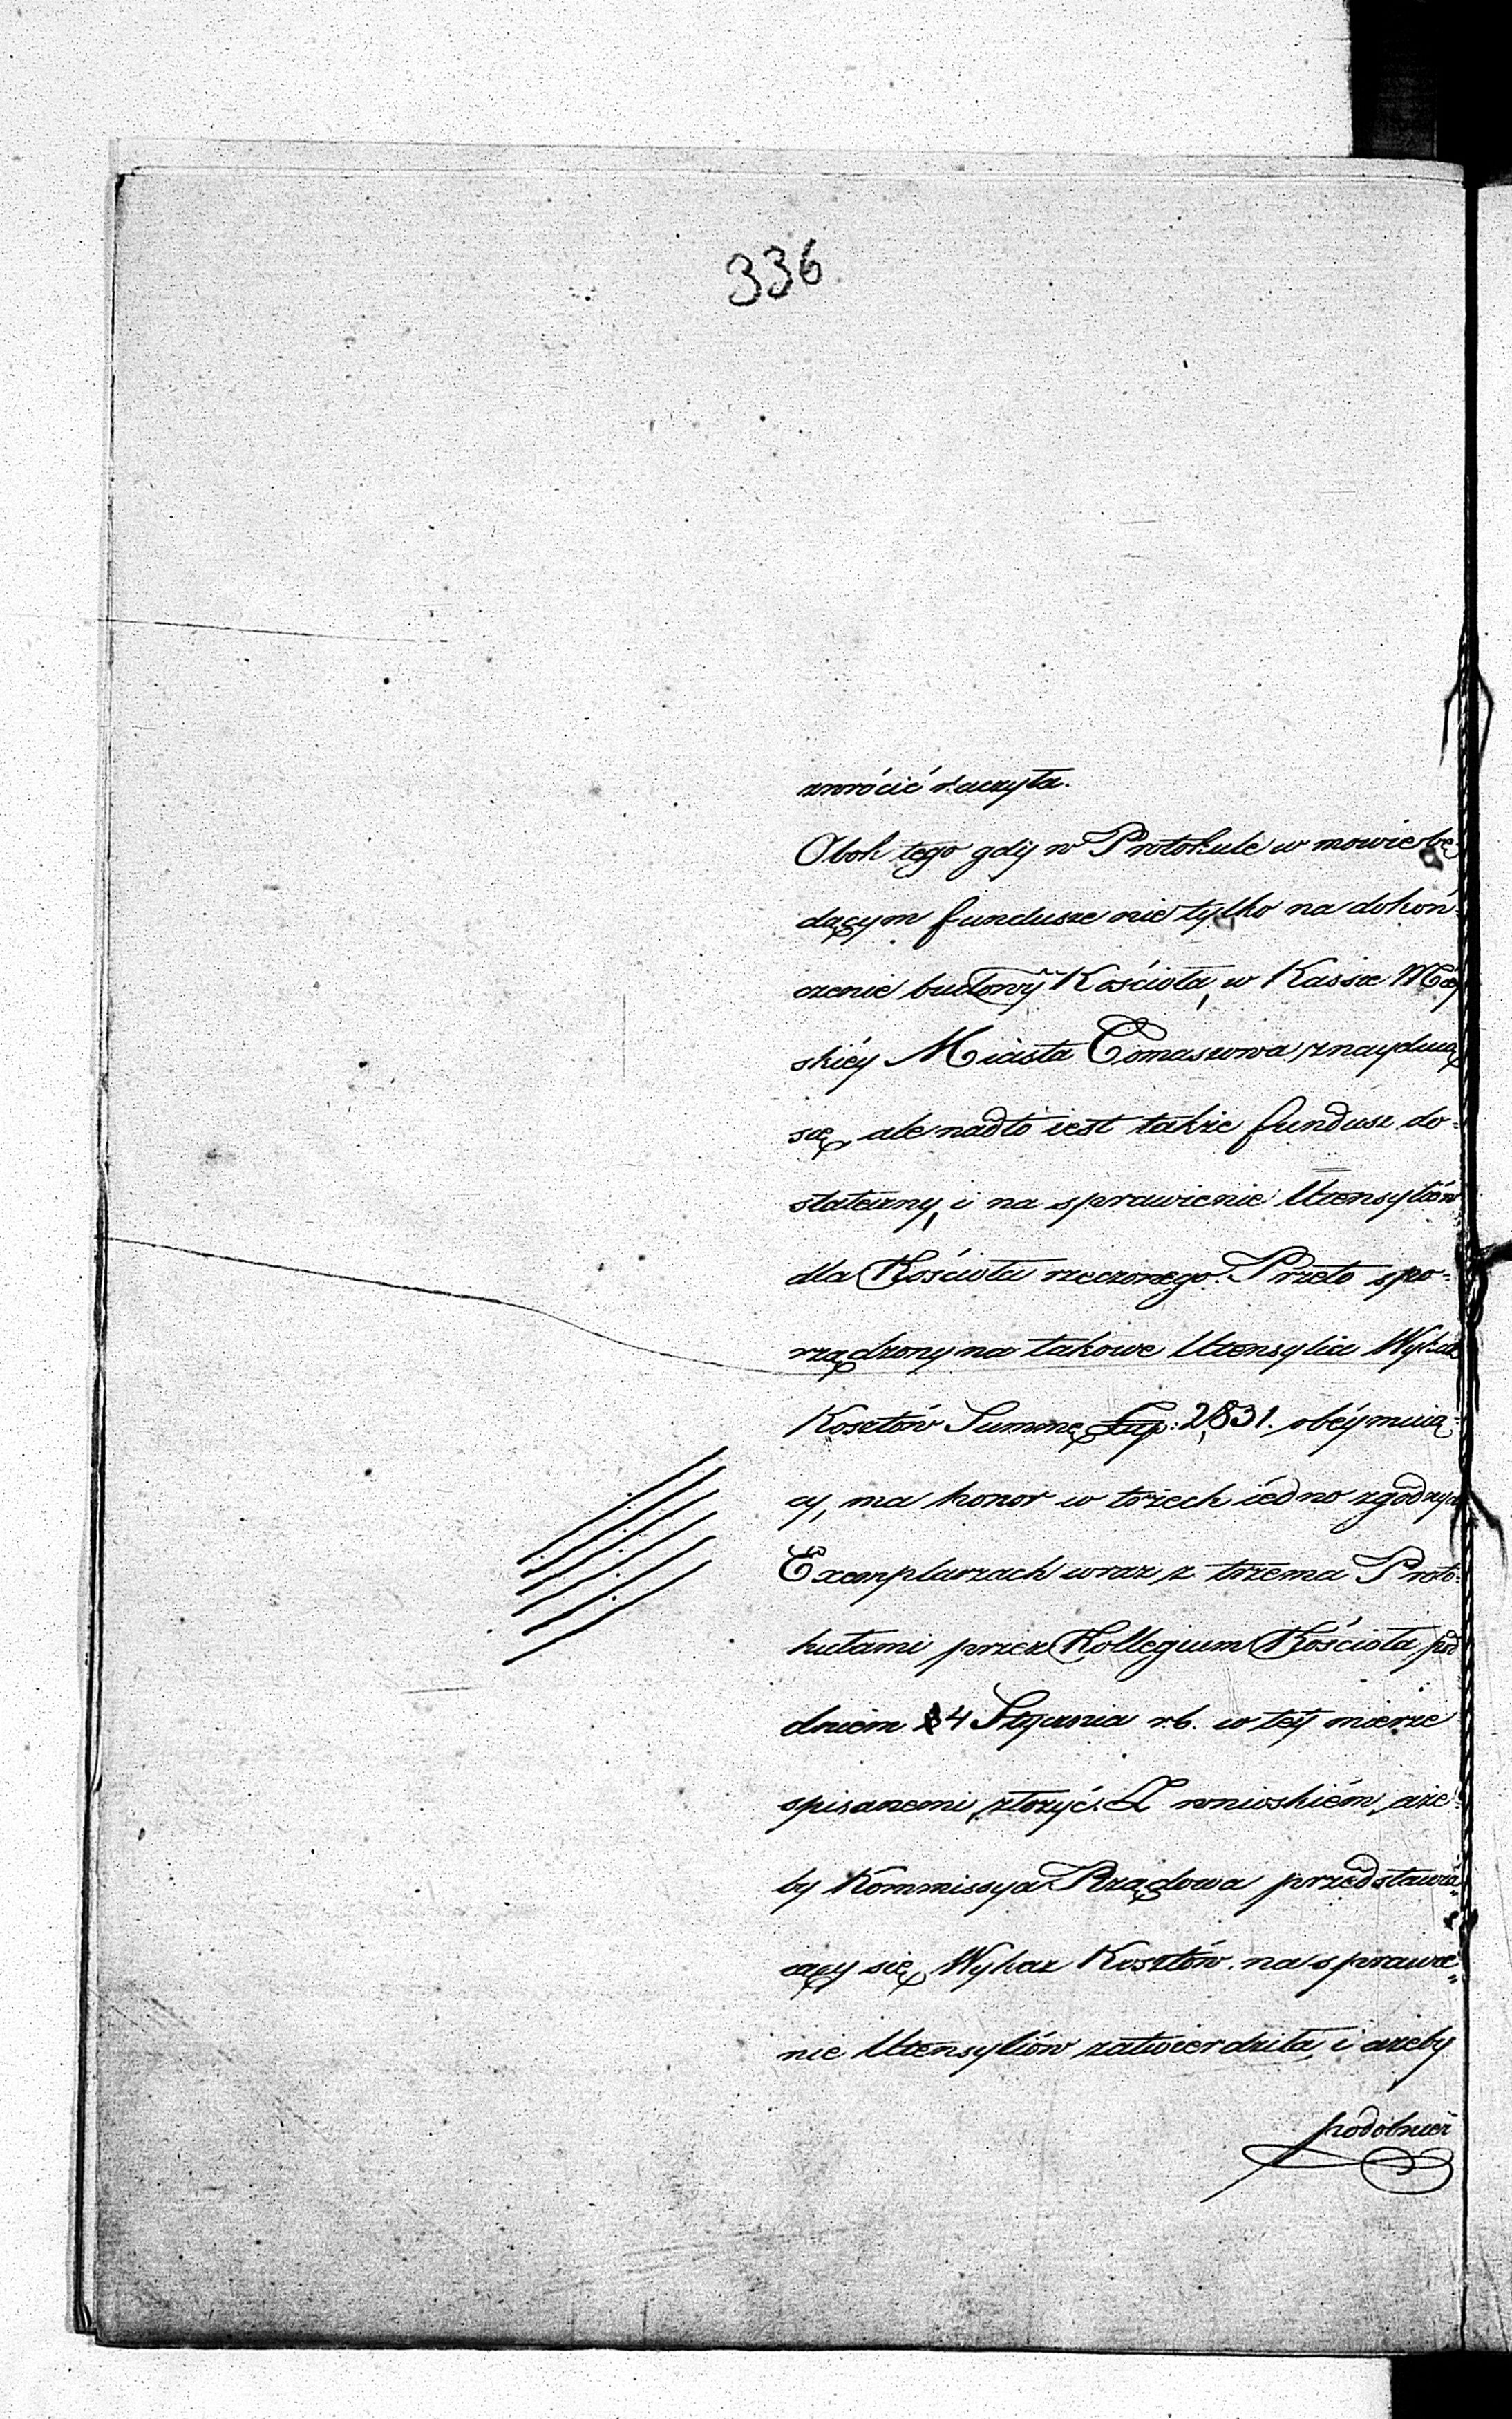 336
zwrócić raczyła.
Obok tego gdy w Protokule w mowie bę
dącym fundusze nie tylko na dokoń
czenie budowy Kościoła, w Kassie Miey
skiéy Miasta Tomaszowa znayduią
się, ale nadto iest także fundusz do-
stateczny, i na sprawienie Utensyliów
dla Kościoła rzeczonego. Przeto spo-
rządzony na takowe Utensylia Wykaz
Kosztów Summę Złp: 2,831. obéymuią-
cy, ma honor w trzech iedno zgodnych
Exemplarzach wraz z trzema Proto-
kułami przez Kollegium Kościoła pod
dniem 4 Stycznia r.b. w téy mierze
spisanemi, złożyć. Z wnioskiém, aże-
by Kommissya Rządowa przedstawia-
iący się Wykaz Kosztów na sprawie-
nie Utensyliów zatwierdziła, i ażeby
podobnież